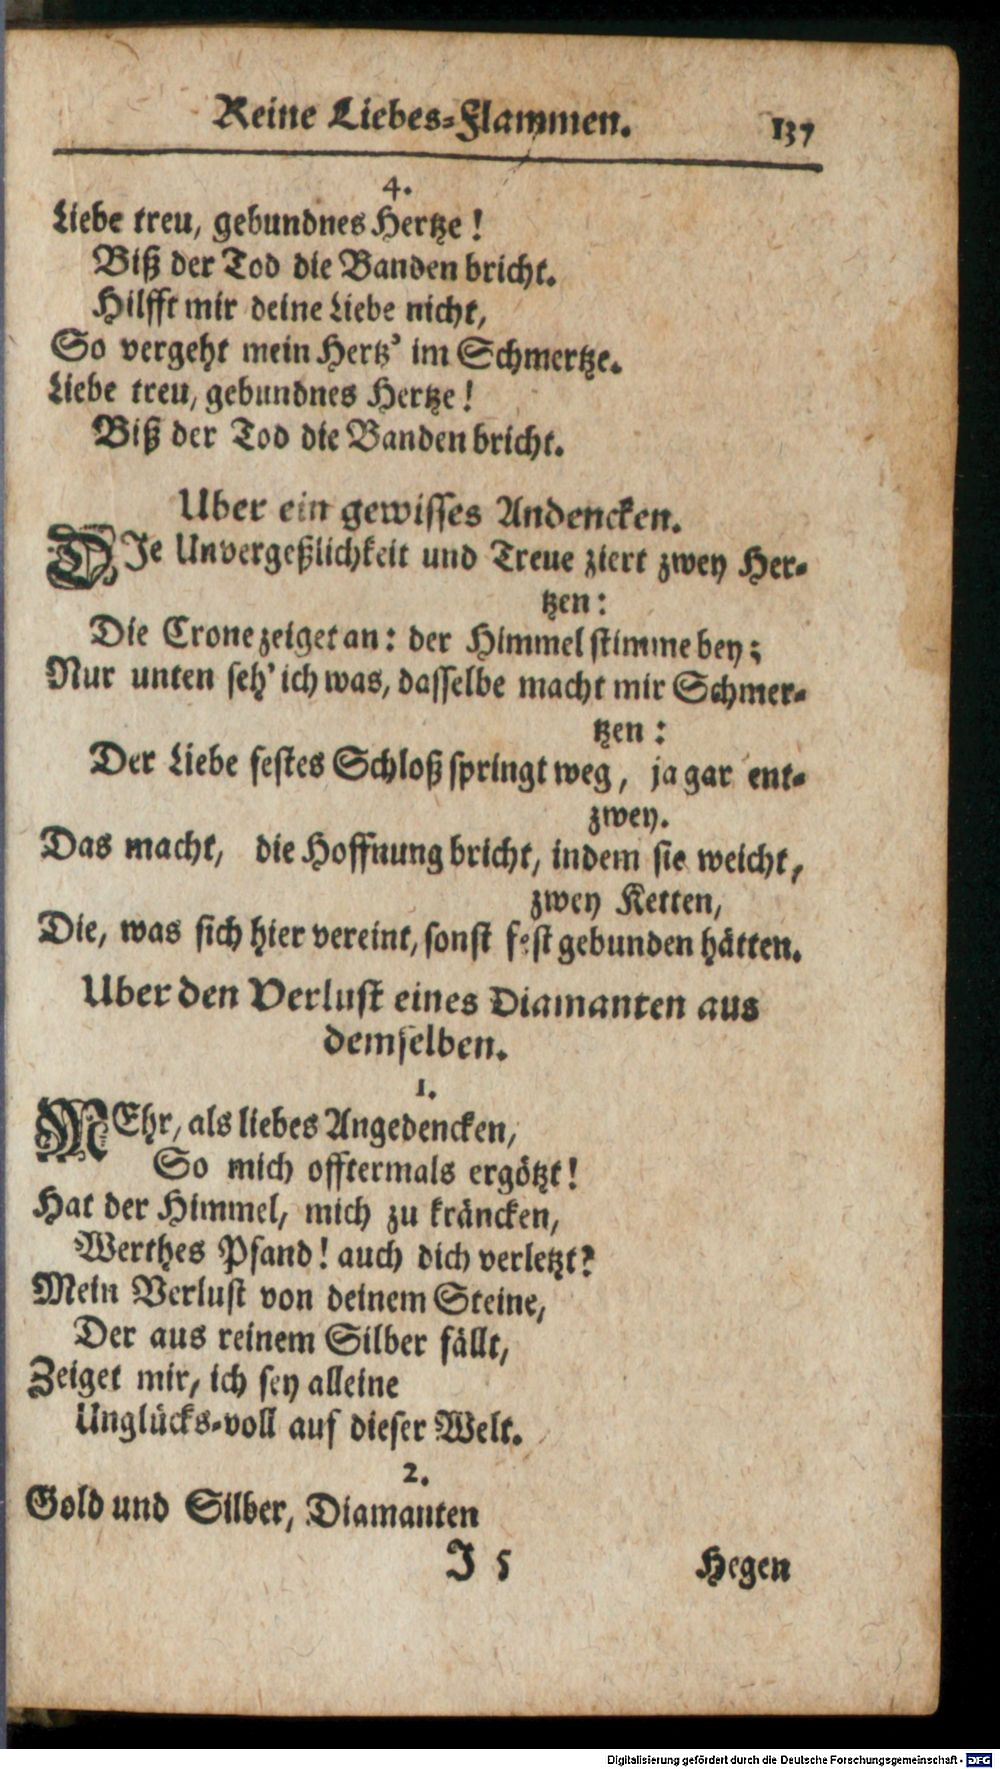 Reine Liebes-Flammen. 137
4.
Liebe treu, gebundnes Hertze!
Biß der Tod die Banden bricht.
Hilfft mir deine Liebe nicht,
So vergeht mein Hertz' im Schmertze.
Liebe treu, gebundnes Hertze!
Biß der Tod die Banden bricht.
Uber ein gewisses Andencken.
DJe Unvergeßlichkeit und Treue ziert zwey Her-
tzen:
Die Crone zeiget an: der Himmel stimme bey;
Nur unten seh' ich was, dasselbe macht mir Schmer-
tzen:
Der Liebe festes Schloß springt weg, ja gar ent-
zwey.
Das macht, die Hoffnung bricht, indem sie weicht,
zwey Ketten,
Die, was sich hier vereint, sonst fest gebunden hätten.
Uber den Verlust eines Diamanten aus
demselben.
1.
MEhr, als liebes Angedencken,
So mich offtermals ergötzt!
Hat der Himmel, mich zu kräncken,
Werthes Pfand! auch dich verletzt?
Mein Verlust von deinem Steine,
Der aus reinem Silber fällt,
Zeiget mir, ich sey alleine
Unglücks-voll auf dieser Welt.
2.
Gold und Silber, Diamanten
J 5 Hegen
Digitalisierung gefördert durch die Deutsche Forschungsgemeinschaft - DFG